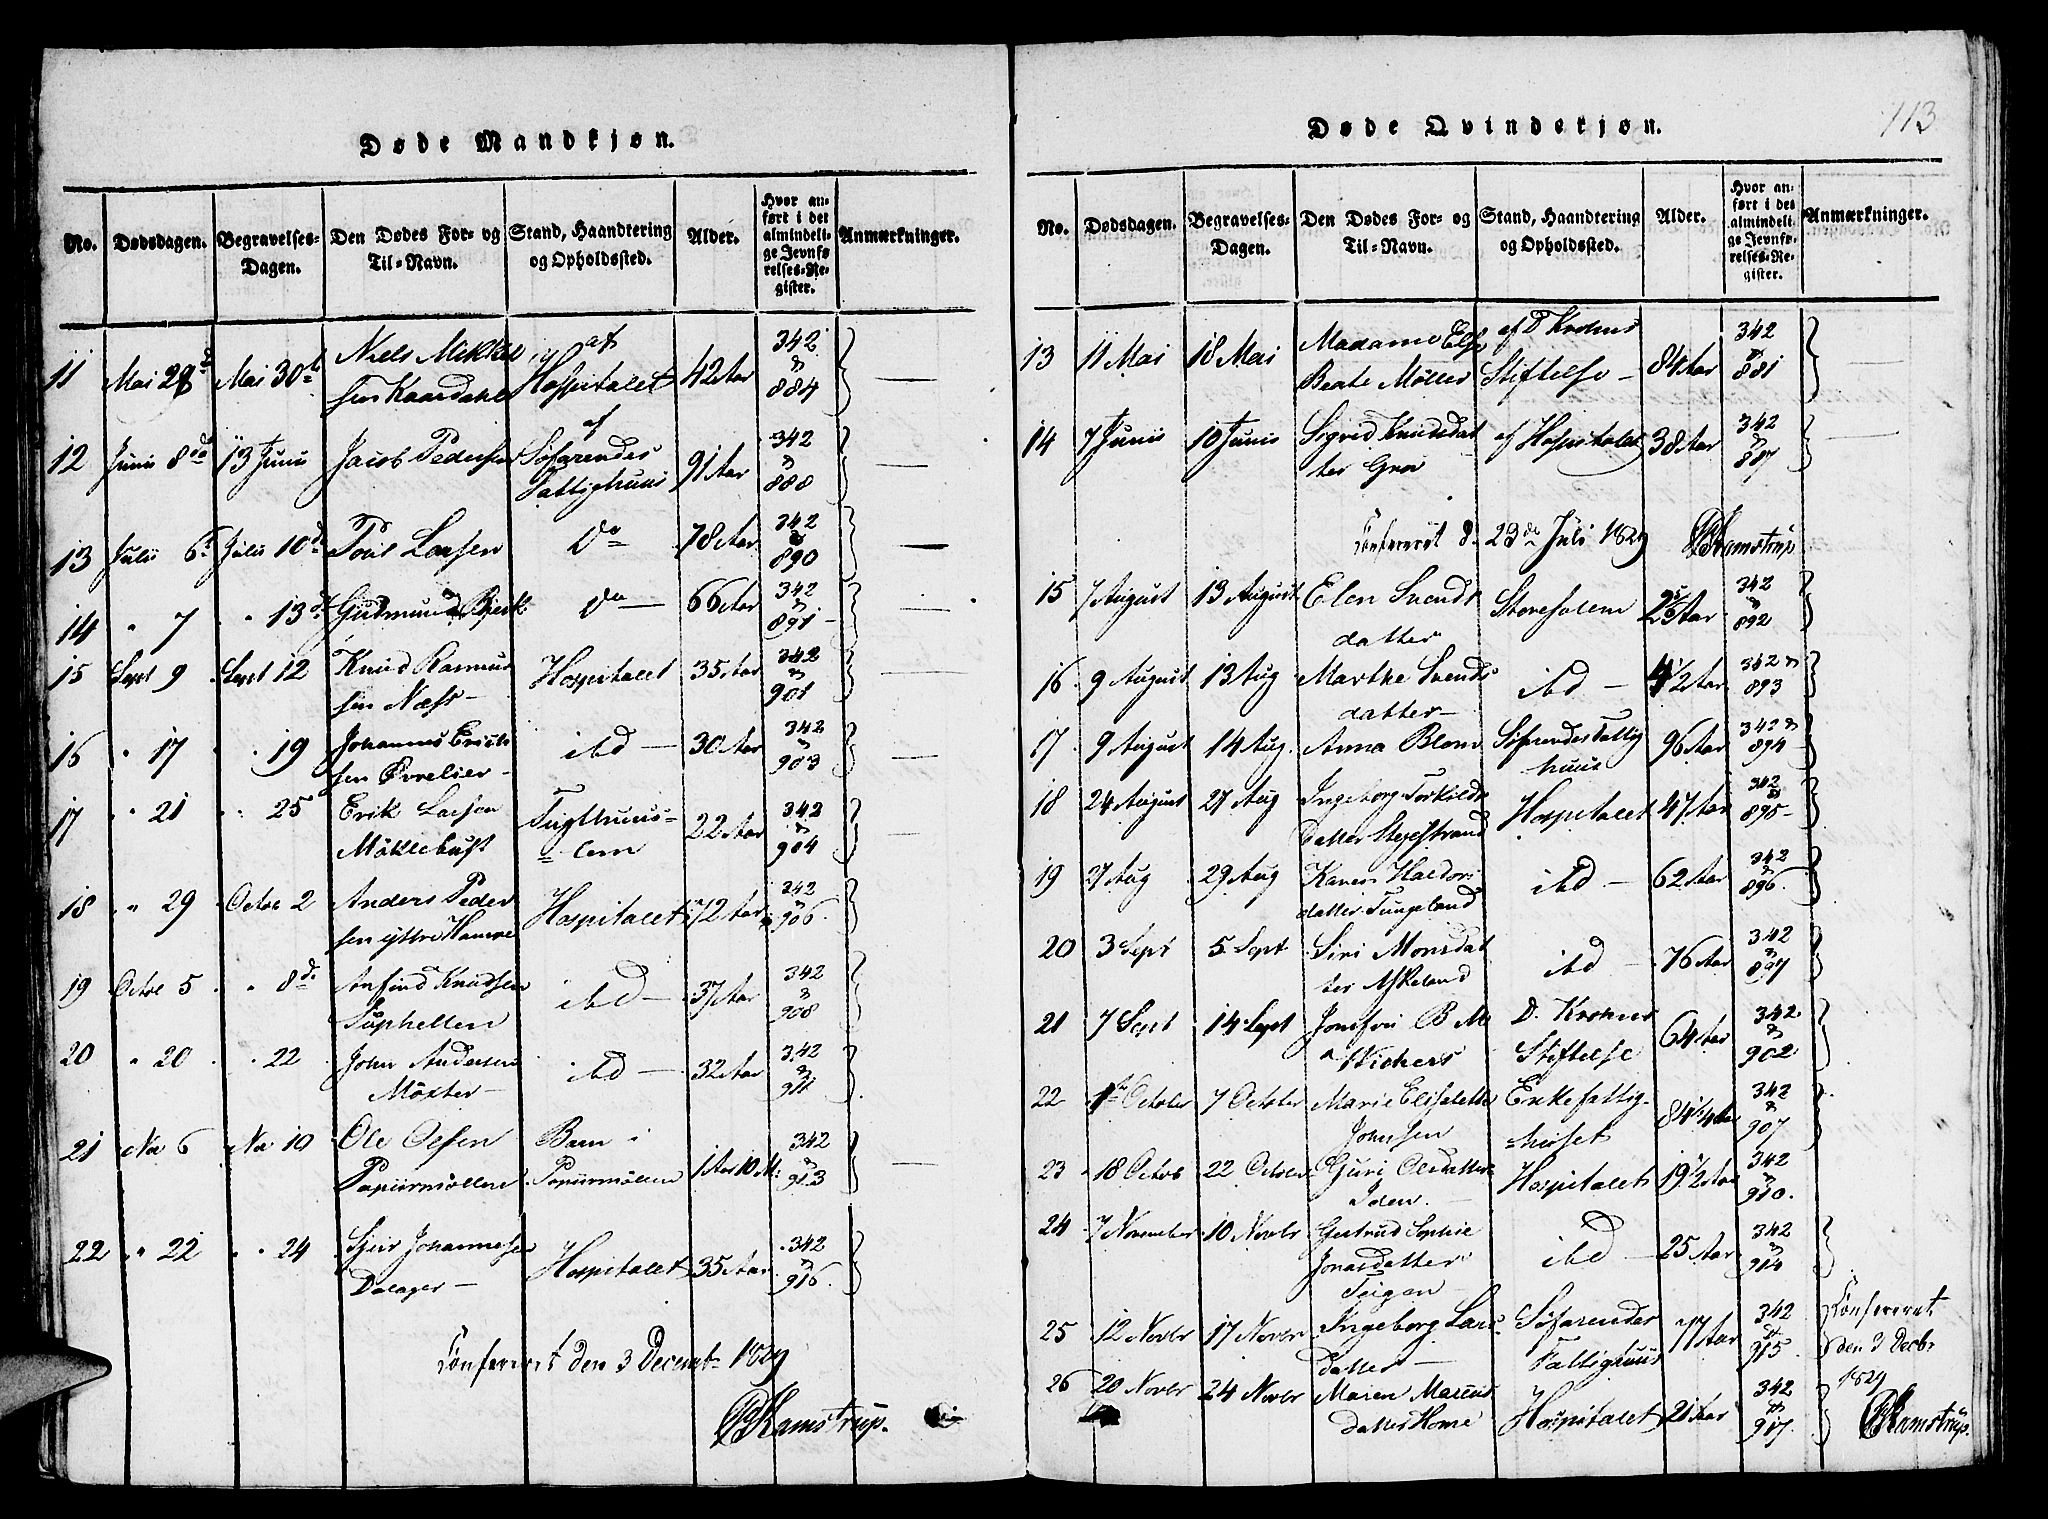 Døde Mandkjøn.
No. Dødsdagen. Begravelses-Dagen. Den Dødes For- og Til-Navn. Stand, Haandtering og Opholdssted. Alder. Hvor anført i det almindelige Jevnførelses-Register. Anmærkninger.
11 Mai 28d Mai 30te Niels Mikkelsen Kaardahl af Hospitalet 42 Aar 342 & 884 —
12 Junii 8de 13 Junii Jacob Pedersen af Søfarendes Fattighuus 91 Aar 342 & 888 —
13 Julii 6t Julii 10de Poul Larsen Do 78 Aar 342 & 890 —
14 " 7 " 13d Gudmund Bjerk Do — 66 Aar 342 & 891 —
15 Sept 9 Sept 12 Knud Rasmussen Næss — Hospitalet 35 Aar 342 & 901 —
16 " 17 " 19 Johannes Erichsen — ibd — 30 Aar 342 & 903 —
17 " 21 " 25 Erik Larsen Møklebust Tugthuuslem 22 Aar 342 & 904 —
18 " 29 Octbe 2 Anders Pedersen yttre Hamre Hospitalet 72 Aar 342 & 906.
19 Octbe 5 " 8de Anfind Knudsen Suphellen ibd — 37 Aar 342 & 908
20 " 20 " 22 John Andersen Møxter — ibd — 32 Aar 342 & 911
21 Nov 6 Nov 10 Ole Olsen Papiirmøllen Barn i Papiirmøllen 1 Aar 10 M: 342 & 913 —
22 " 22 " 24 Sjur Johannesen Dalager — Hospitalet 35 Aar 342 & 916.
Confereret den 3 Decembr 1829
Ramstrup.
113
Døde Qvindekjøn.
No. Dødsdagen. Begravelses-Dagen. Den Dødes For- og Til-Navn. Stand, Haandtering og Opholdssted. Alder. Hvor anført i det almindelige Jevnførelses-Register. Anmærkninger.
13 11 Mai 18 Mai Madame Else Beate Møller af D Krohns Stiftelse — 84 Aar 342 & 881 —
14 7 Junii 10 Junii Sigrid Knudsdatter af Hospitalet 38 Aar 342 & 887 —
Confereret d: 23de Juli 1829 Ramstrup
15 7 August 13 August Elen Svendsdatter 342 & 892
16 9 August 13 Aug Marthe Svendsdatter — ibd — 4 1/2 Aar 342 & 893
17 9 August 14 Aug. Anna Blom Søfarendes Fattighuus 96 Aar 342 & 894
18 24 August 27 Aug Ingeborg Torkildsdatter Hospitalet 47 Aar 342 & 895 —
19 27 Aug 29 Aug Karen Haldorsdatter Tungeland ibd — 62 Aar 342 & 896.
20 3 Sept 5 Sept Siri Monsdatter Askeland ibd — 76 Aar 342 & 897
21 7 Sept 14 Sept Jomfru B M Wichers D. Krohns Stiftelse 64 Aar 342 & 902
22 1ste October 7 October Marie Elisabeth Johnsen Enkefattighuset 84 1/4 Aar 342 & 907
23 18 Octob 22 October Guri Olsdatter Iden. Hospitalet 19 1/2 Aar 342 & 910.
24 7 November 10 Novbr Gertrud Sophie Jonasdatter Teigen — ibd — 25 Aar 342 & 914
25 12 Novbr 17 Novbr Ingeborg Larsdatter — Søfarendes Fattighuus 77 Aar 342 & 915
Confereret den 3 Decbr 1829
26 20 Novbr 24 Novbr Maren Marcusdatter Hospitalet 21 Aar 342 & 917.
Ramstrup.